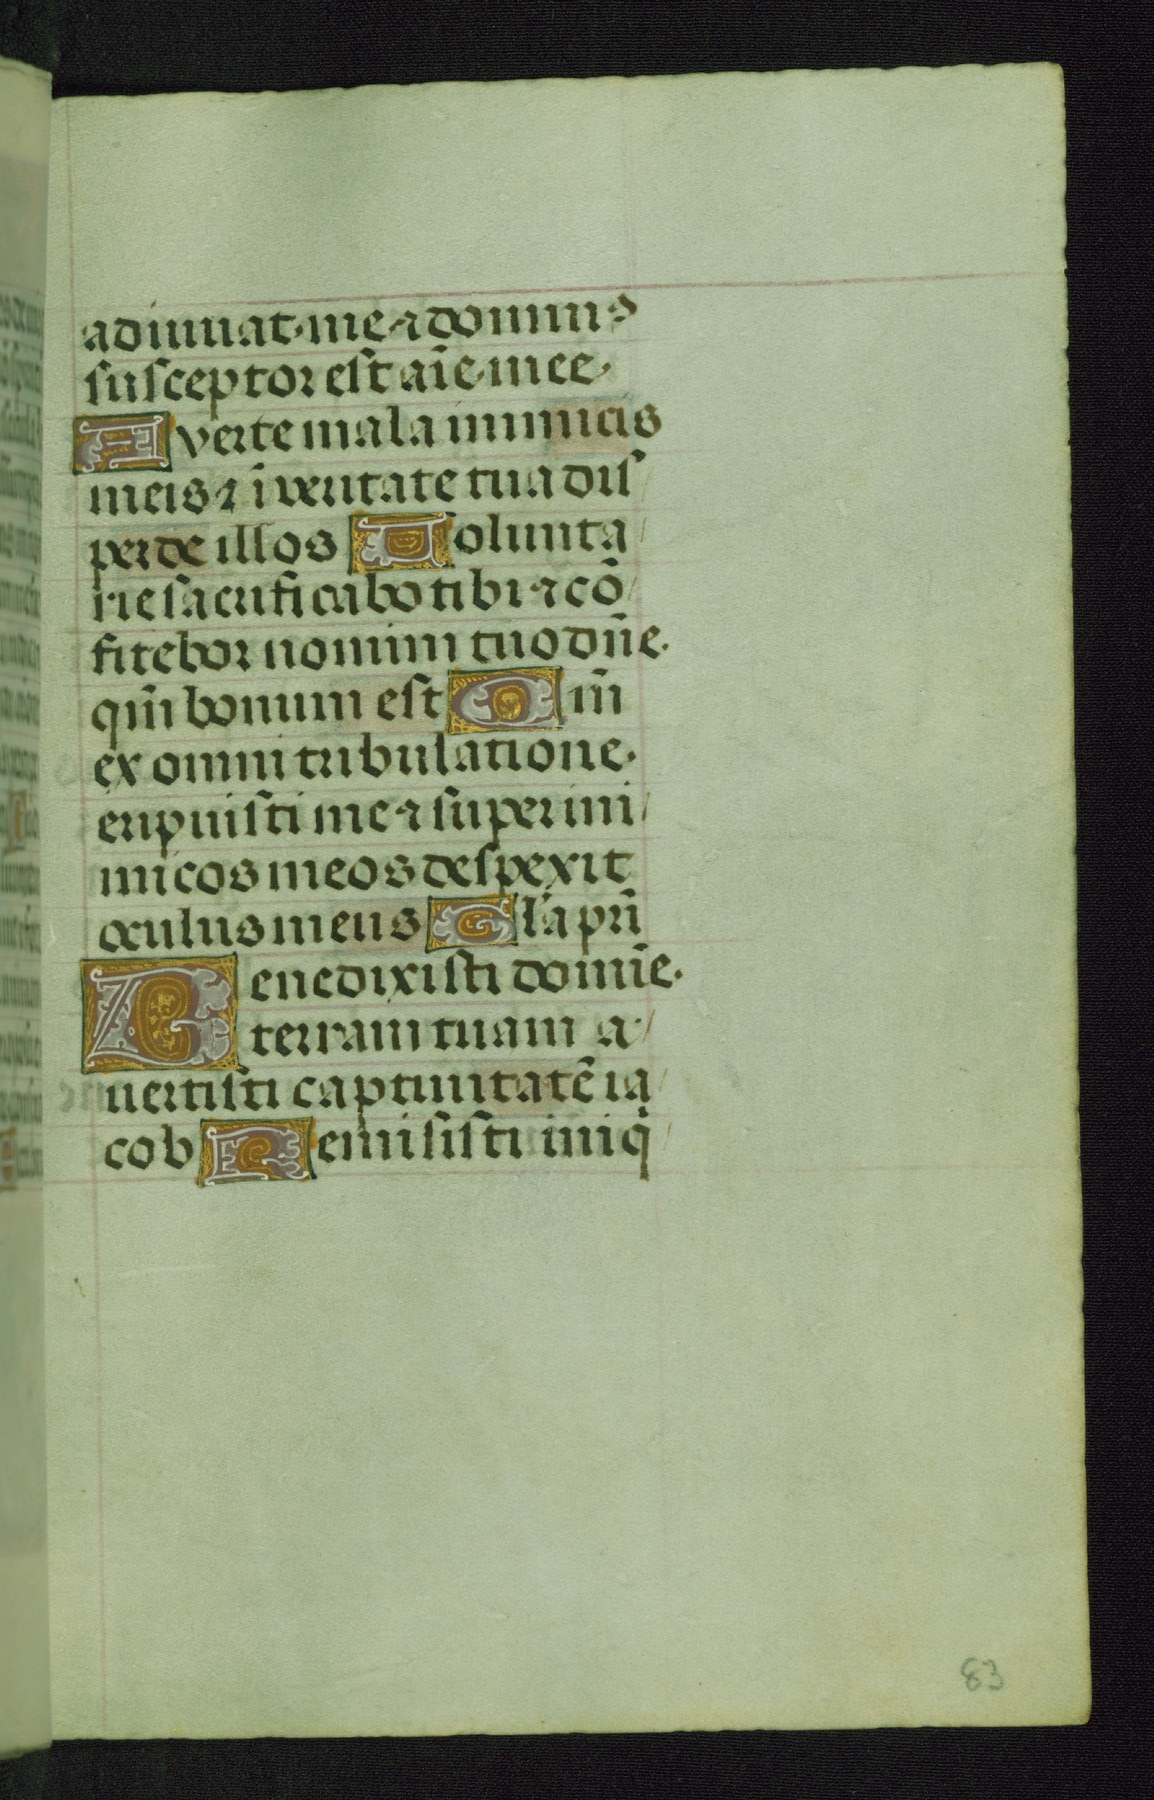 adiuuat me ⁊ dominus
susceptor est aīe mee.
Averte mala inimicis
meis ⁊ ī veritate tua dis
perde illos Volunta
rie sacrificabo tibi ⁊ cō
fitebor nomini tuo dñe.
qm̄ bonum est Qm̄
ex omni tribulatione.
eripuisti me ⁊ super ini
micos meos despexit
oculus meus Gl'a pri̅
Benedixisti domin̄e.
terram tuam a
uertisti captiuitatē ia
cob Remisisti iniq̇
83